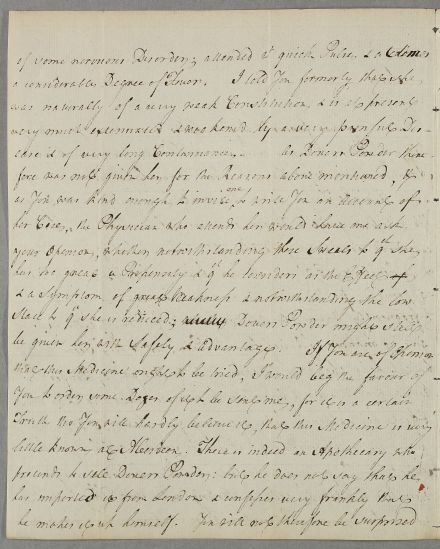 of some nervous Disorder; attended wt quick Pulse, & a
a considerable Degree of Fever. I told You formerly that she
was naturally of a very weak Constitution, & is at present
very much extenuated & weakened by a very painful Dis-
ease & of very long Continuance. As Dovers Powder there
fore was not given her for the Reasons above mentioned, &
as You was kind enough to invite one to write You on Account of
her Case, the Physician who attends her would have me ask
your Opinion, whether notwithstanding these Sweats to wh she
has too great a Propensity & wh he considers as the Effect
& a Symptom of great Weakness & notwithstanding the low
State to wh she is reduced; Dovers Powder might still
be given her with Safety & advantage. If You are of Opinion
that this Medicine ought to be tried, I would beg the favour of
You to order some Doses of it to be sent me, for it is a certain
Truth tho You will hardly believe it, that this Medicine is very
little known at Aberdeen. There is indeed an Apothecary who
pretends to sell Dovers Powder: but he does not say that he
has imported it from London & confesses very frankly that
he makes it up himself. You will not therefore be surprised